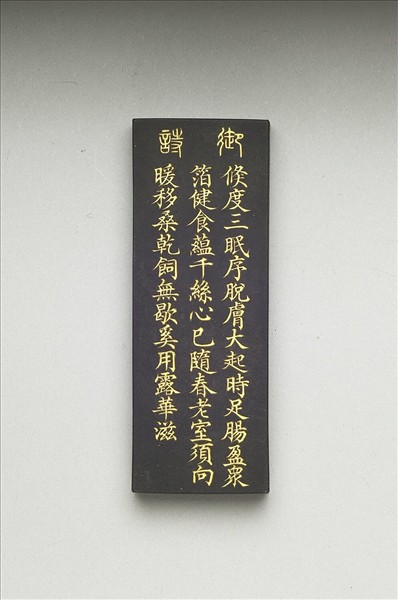 御詩
倏度三眠序脫膚大起時足腸盈眾
箔健食蘊千絲心已隨春老室須向
暖移桑乾飼無歇奚用露華滋